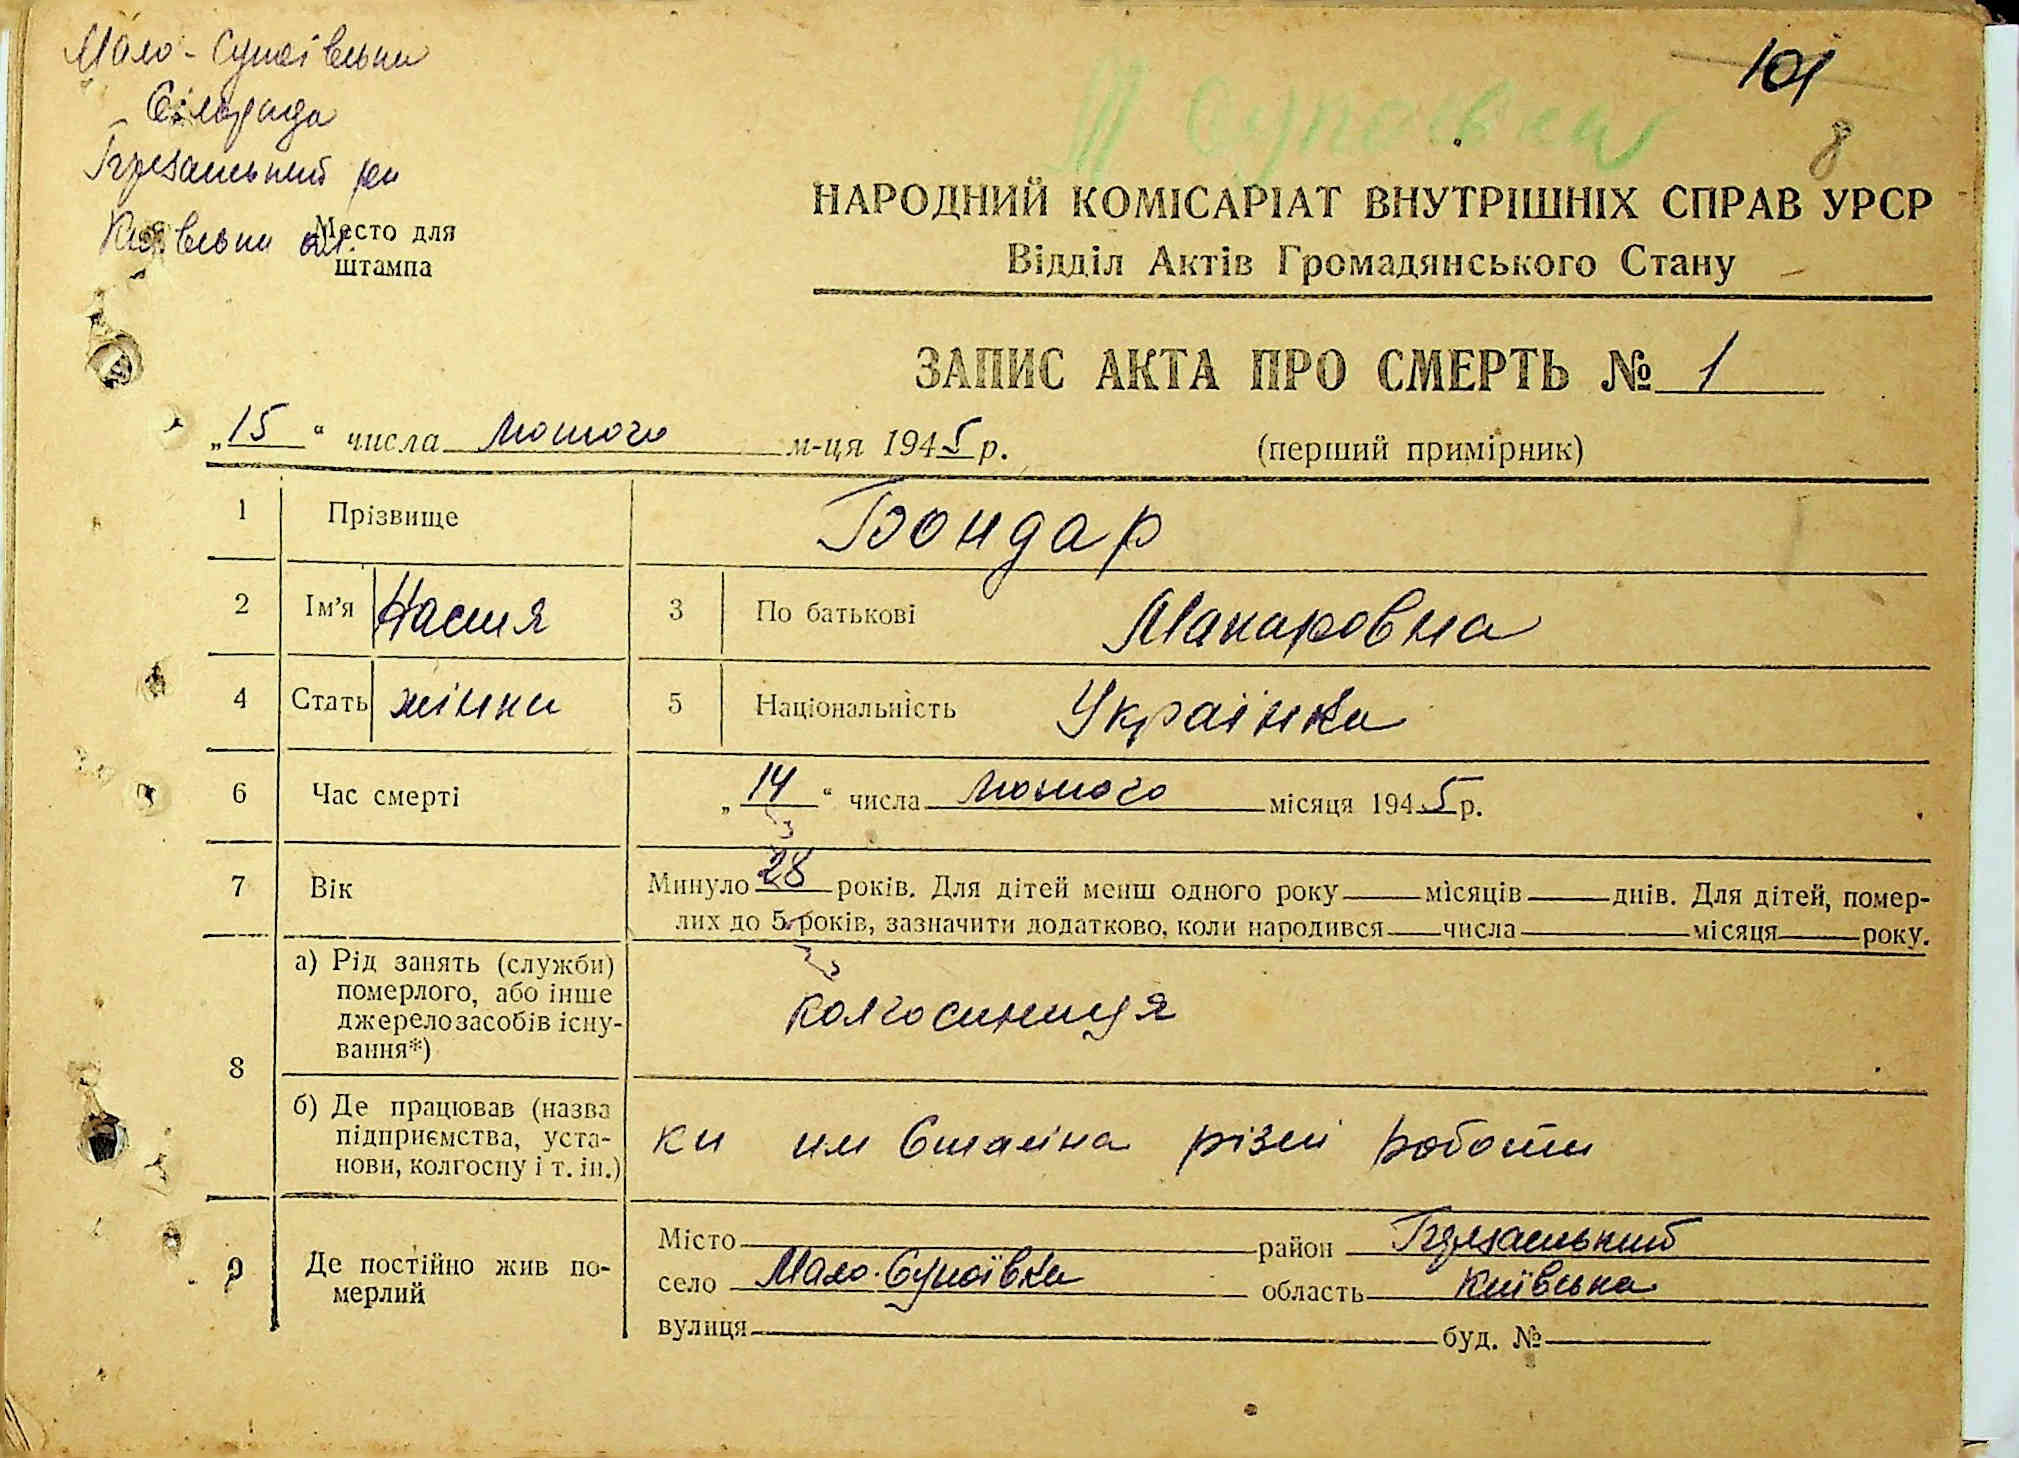 Мало-Супоївська
Сільрада
Згурівський рн
Київська обл.
Место для
штампа
101
8
М Супоївка
НАРОДНИЙ КОМІСАРІАТ ВНУТРІШНІХ СПРАВ УРСР
Відділ Актів Громадянського Стану
ЗАПИС АКТА ПРО СМЕРТЬ № 1
„15“ числа лютого м-ця 1945 р. (перший примірник)
1 Прізвище Бондар
2 Ім'я Настя 3 По батькові Макаровна
4 Стать жінка 5 Національність Українка
6 Час смерті „14“ числа лютого місяця 1945 р.
7 Вік Минуло 28 років. Для дітей менш одного року місяців днів. Для дітей, помер-
лих до 5 років, зазначити додатково, коли народився числа місяця року.
8 а) Рід занять (служби)
померлого, або інше
джерело засобів існу-
вання*)
колгоспниця
б) Де працював (назва
підприємства, уста-
нови, колгоспу і т. ін.)
им Сталіна різні роботи
9 Де постійно жив по-
мерлий
Місто район
село Мало-Супоївка область Київська
вулиця буд. №